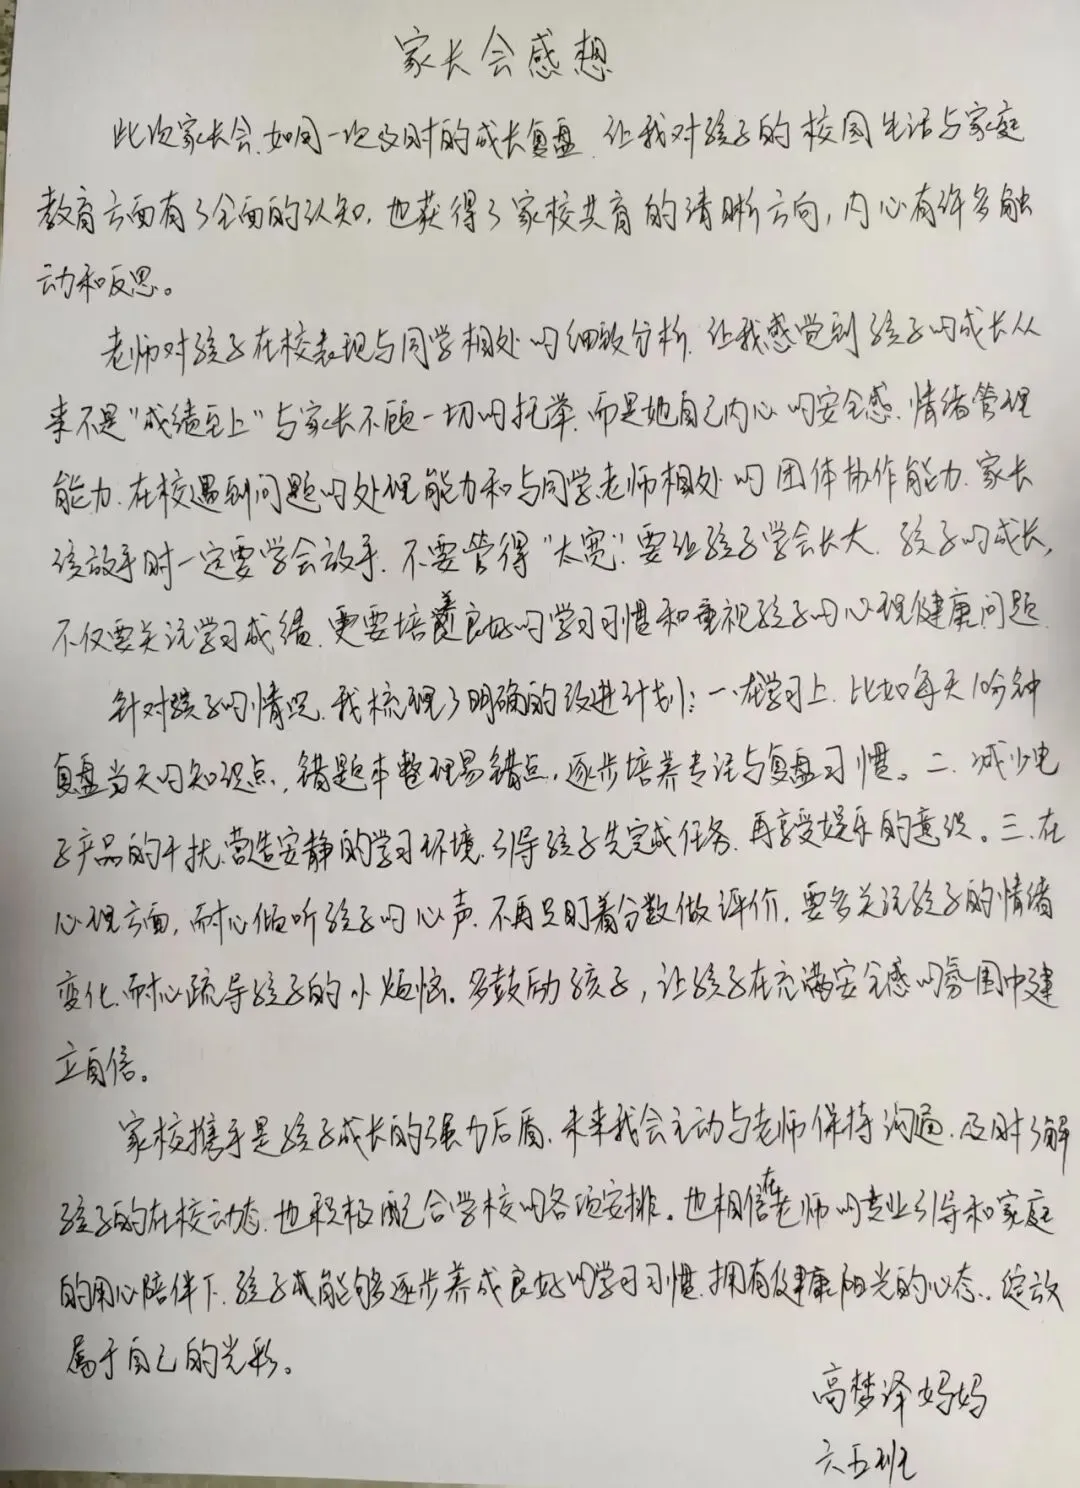 家长会感想
此次家长会、如同一次及时的成长复盘、让我对孩子的校园生活与家庭
教育方面有了全面的认知，也获得了家校共育的清晰方向，内心有许多触
动和反思。
老师对孩子在校表现与同学相处的细致分析、让我感觉到孩子的成长从
来不是“成绩至上”与家长不顾一切的托举、而是她自己内心的安全感、情绪管理
能力、在校遇到问题的处理能力和与同学老师相处的团体协作能力、家长
该放手时一定要学会放手、不要管得“太宽”、要让孩子学会长大、孩子的成长，
不仅要关注学习成绩、更要培养良好的学习习惯和重视孩子的心理健康问题、
针对孩子的情况、我梳理了明确的改进计划：一、在学习上、比如每天10分钟
复盘当天的知识点，错题本整理易错点，逐步培养专注与复盘习惯。二、减少电
子产品的干扰、营造安静的学习环境、引导孩子先完成任务、再享受娱乐的意识。三、在
心理方面，耐心倾听孩子的心声、不再只盯着分数做评价，要多关注孩子的情绪
变化、耐心疏导孩子的小烦恼。多鼓励孩子，让孩子在充满安全感的氛围中建
立自信。
家校携手是孩子成长的强力后盾、未来我会主动与老师保持沟通、及时了解
孩子的在校动态、也积极配合学校的各项安排。也相信在老师的专业引导和家庭
的用心陪伴下、孩子咸能够逐步养成良好的学习习惯、拥有健康阳光的心态、绽放
属于自己的光彩。
高梦泽妈妈
六五班